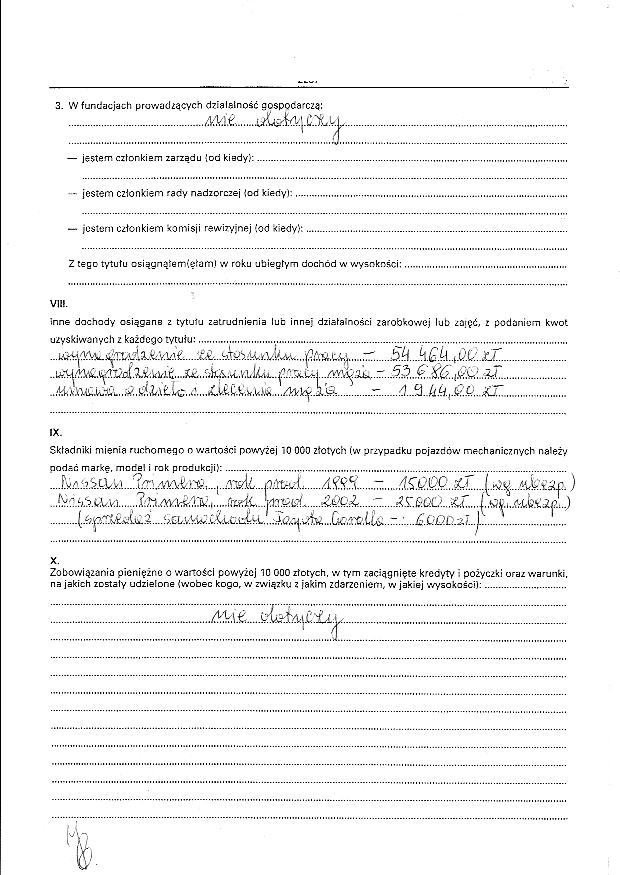 3. W fundacjach prowadzących działalność gospodarczą:
nie dotyczy
— jestem członkiem zarządu (od kiedy):
— jestem członkiem rady nadzorczej (od kiedy):
— jestem członkiem komisji rewizyjnej (od kiedy):
Z tego tytułu osiągnąłem(ęłam) w roku ubiegłym dochód w wysokości:
VIII.
Inne dochody osiągane z tytułu zatrudnienia lub innej działalności zarobkowej lub zajęć, z podaniem kwot
uzyskiwanych z każdego tytułu:
wynagrodzenie ze stosunku pracy – 54 464,00 zł
wynagrodzenie ze stosunku pracy męża – 53 686,00 zł
umowa o dzieło i zlecenie męża – 1 944,00 zł
IX.
Składniki mienia ruchomego o wartości powyżej 10 000 złotych (w przypadku pojazdów mechanicznych należy
podać markę, model i rok produkcji):
Nissan Primera, rok prod. 1999 – 15000 zł (wg. ubezp.)
Nissan Primera, rok prod. 2002 – 25000 zł (wg. ubezp.)
(sprzedaż samochodu Toyota Corolla – 6000 zł)
X.
Zobowiązania pieniężne o wartości powyżej 10 000 złotych, w tym zaciągnięte kredyty i pożyczki oraz warunki,
na jakich zostały udzielone (wobec kogo, w związku z jakim zdarzeniem, w jakiej wysokości):
nie dotyczy